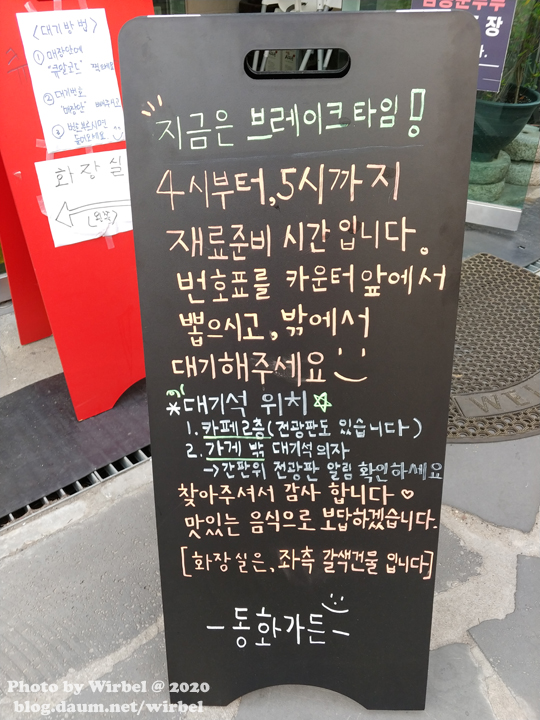 <대기방법>
① 매장안에
②대기번호
화장실
지금은 브레이크타임!
4시부터,5시까지
재료준비 시간입니다.
번호표를 카운터앞에서
뽑으시고, 밖에서
대기해주세요
*대기석 위치☆
1. 카페2층(전광판도 있습니다)
2. 가게 밖 대기석의자
→간판위 전광판 알림 확인하세요
찾아주셔서 감사 합니다♡
맛있는 음식으로 보답하겠습니다.
[화장실은, 좌측 갈색건물 입니다]
-동화가든-
WE
장
다.
Photo by Wirbel @ 2020
blog.daum.net/wirbel